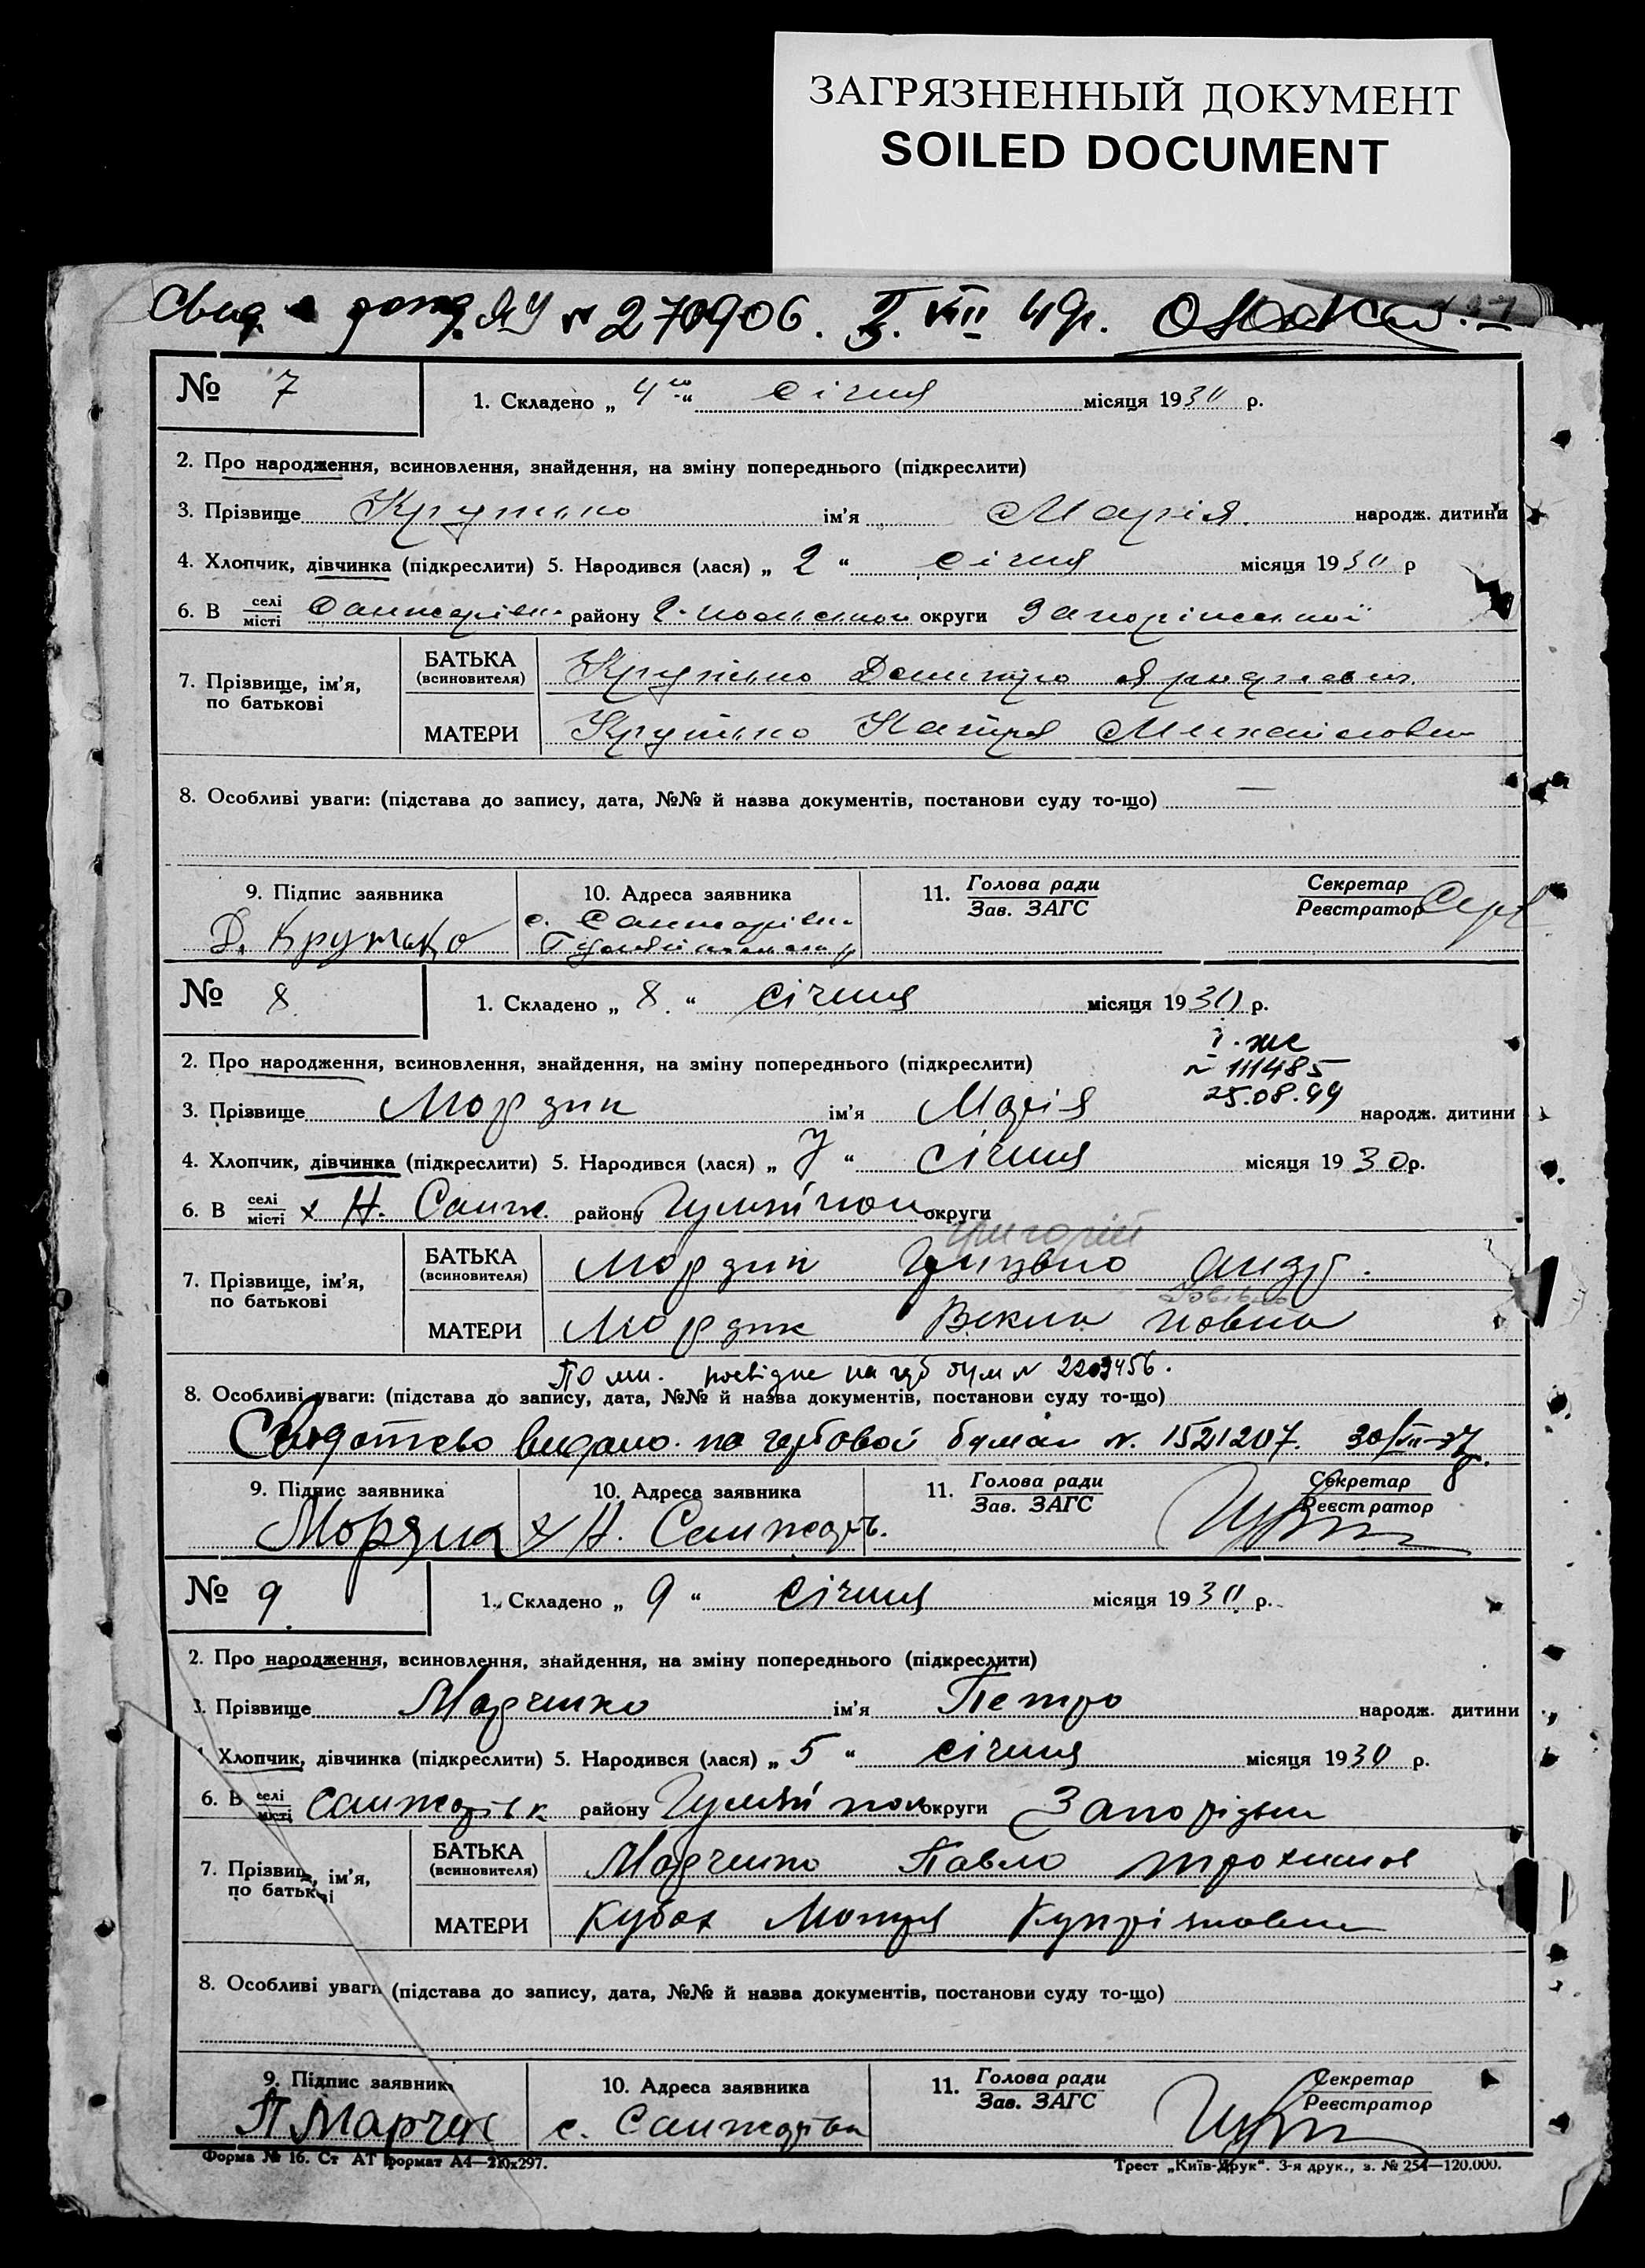 ЗАГРЯЗНЕННЫЙ ДОКУМЕНТ
SOILED DOCUMENT
№ 270906. VIII 49р.
№ 7 1. Складено „ 4го “ січня місяця 1930 р.
2. Про народження, всиновлення, знайдення, на зміну попереднього (підкреслити)
3. Прізвище Крутько ім'я Марія народж. дитини
4. Хлопчик, дівчинка (підкреслити) 5. Народився (лася) „ 2 “ січня місяця 1930 р
6. В селі місті Санжарівк району округи Запоріжської
7. Прізвище, ім'я, по батькові
БАТЬКА (всиновителя) Крутько Дмитро
МАТЕРИ Крутько Катря Михайловн
8. Особливі уваги: (підстава до запису, дата, №№ й назва документів, постанови суду то-що) —
9. Підпис заявника 10. Адреса заявника 11. Голова ради Зав. ЗАГС Секретар Реєстратор
Д. Крутько с. Санжарівк
№ 8 1. Складено „ 8. “ січня місяця 1930 р.
2. Про народження, всиновлення, знайдення, на зміну попереднього (підкреслити)
№ 111485
25.08.99
3. Прізвище Мордик ім'я Марія народж. дитини
4. Хлопчик, дівчинка (підкреслити) 5. Народився (лася) „ 7 “ січня місяця 1930р.
6. В селі місті х Н. Санж. району Гуляйпол округи
Григорій
7. Прізвище, ім'я, по батькові
БАТЬКА (всиновителя) Мордик Грицько Андр.
МАТЕРИ Мордик Векла
8. Особливі уваги: (підстава до запису, дата, №№ й назва документів, постанови суду то-що)
Свидотство видано на гербовой бумаги №. 1521207.
9. Підпис заявника 10. Адреса заявника 11. Голова ради Зав. ЗАГС Секретар Реєстратор
х Н. Санжар.
№ 9. 1. Складено „ 9 “ січня місяця 1930 р.
2. Про народження, всиновлення, знайдення, на зміну попереднього (підкреслити)
3. Прізвище Марченко ім'я Петро народж. дитини
Хлопчик, дівчинка (підкреслити) 5. Народився (лася) „ 5 “ січня місяця 1930 р.
6. В селі місті Санжарівк району Гуляйпол округи Запоріжж
7. Прізвищ, ім'я, по батькові
БАТЬКА (всиновителя) Марченко Павло Трохимов
МАТЕРИ Кубах Мотря Купріяновн
8. Особливі уваги (підстава до запису, дата, №№ й назва документів, постанови суду то-що)
9. Підпис заявник 10. Адреса заявника 11. Голова ради Зав. ЗАГС Секретар Реєстратор
П Марчен с. Санжарівка
Форма № 16. Ст АТ формат А4—210х297. Трест „Київ-Друк“. 3-я друк., з. № 254—120.000.